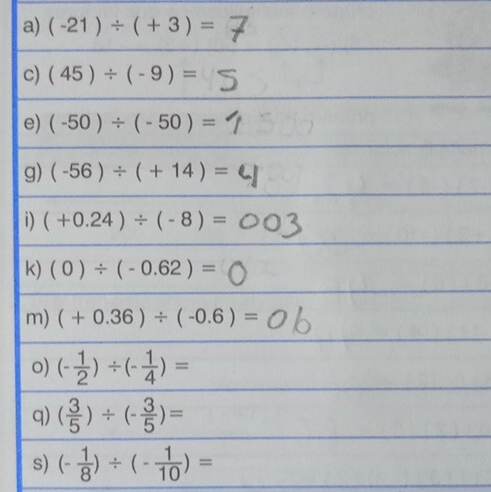 a) ( -21 ) ÷ ( + 3 ) = 7
c) ( 45 ) ÷ ( - 9 ) = 5
e) ( -50 ) ÷ ( - 50 ) = 1
g) ( -56 ) ÷ ( + 14 ) = 4
i) ( +0.24 ) ÷ ( - 8 ) = 003
k) ( 0 ) ÷ ( - 0.62 ) = 0
m) ( + 0.36 ) ÷ ( -0.6 ) = 06
o) (- 1/2 ) ÷ (- 1/4 ) =
q) ( 3/5 ) ÷ (- 3/5 )=
s) (- 1/8 ) ÷ ( - 1/10 ) =